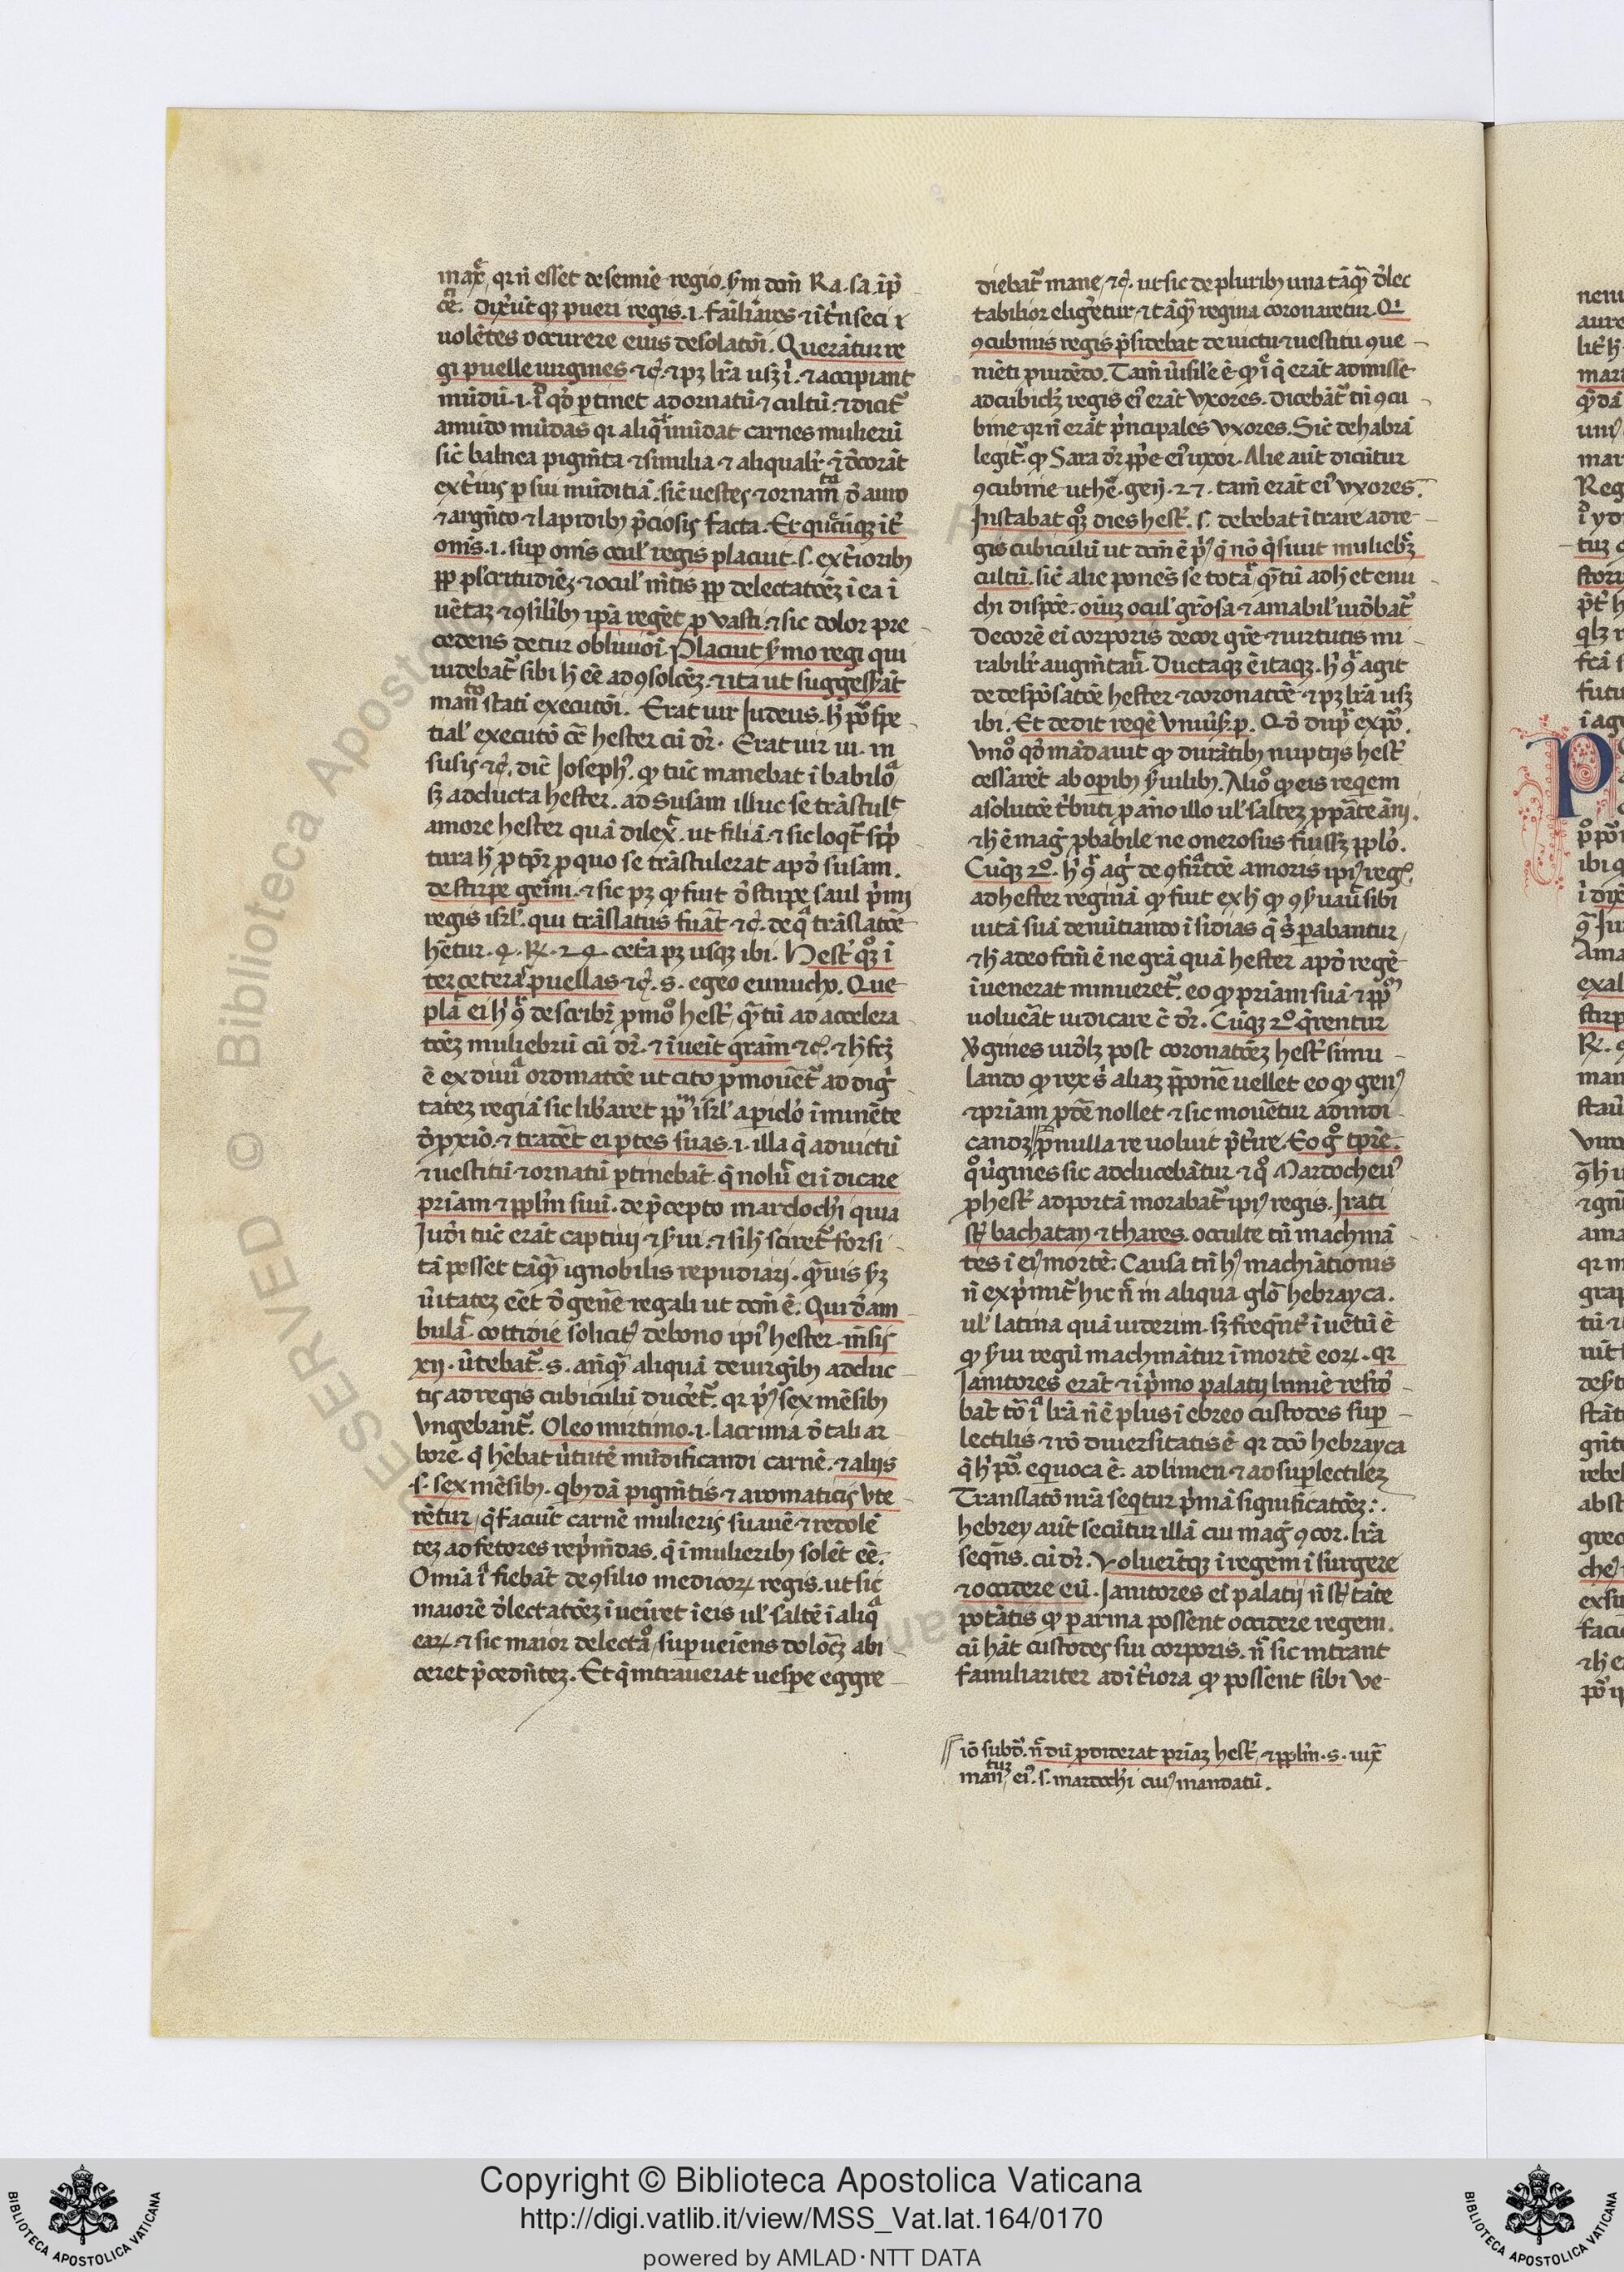 maxͤ, qr n̄ esset de semīe regio. ẏm dcm̄ Ra. sa. ip̄
cēͬ. Dixer̄ūtqꝫ pueri regis .i. fāiliāres ⁊ īt̄nseci ⁊
uolētes occurrere eius desolatōi. Querātur re
gi puelle uirgines ⁊c̄. ⁊ pꝫ lr̄a usqꝫ ī. ⁊ accipiant
mūdū .i. iͩ qđ ꝑtinet ad ornatū ⁊ cultū. ⁊ dicit᷑
a mūdo mūdas qr aliqͣ mūdat carnes mulierū
sic̄ balnea pigm̄ta ⁊ similia ⁊ aliqualr̄ ⁊ đcorāt
ext̄ius ꝑ sui mūditiā. sic̄ uestes ⁊ ornam̄ta đ auro
⁊ argēto ⁊ lapidibꝫ p̄ciosis facta. Et quecūqꝫ īt̄
om̄s .i. suꝑ om̄s ocul' regis placuit .s. ext̄ioribꝫ
ꝓꝑ pulcritudiēꝫ ⁊ ocul' mētis ꝓꝑ delectatōeꝫ ī ea ī
uētaꝫ ⁊ ꝯsil'ibꝫ ip̄a regēt ꝓ vasti. ⁊ sic dolor pre
cedens detur obliuioi. Placuit ẏmo regi qui
uidebat᷑ sibi ħ eē ad ꝯsolatōeꝫ. ⁊ ita ut suggesserāt
mandato stati executōi. Erat uir Judeus. ħ pōͬ spe
tial' executō cͣ hester cū dr̄. Erat uir iu. in
susis ⁊c̄. dic̄ Joseph᷒. ꝙ tūc manebat ī babiloͣ
sꝫ adducta hester. ad susam illuc se trāstulit
amore hester quā dilexͭ. ut filiā. ⁊ sic loqͭ sc̄p
tura ħ ꝓ tꝑr ꝓ quo se trāstulerat apđ susam.
de stirpe gemi. ⁊ sic pꝫ ꝙ fuit đ stirpe saul p̄mi
regis isrl'. qui trāslatus fuāt ⁊c̄. de qͣ trāslatōe
hētur .4. R͛. 24. cet̄a pꝫ usqꝫ ibi. Hest̄ qͦꝫ ī
ter ceteras puellas ⁊c̄. s. egeo eunucho. Que
plaͭ ei ħ ꝯͬ describr̄ ꝓmoͦ hest̄, qͣtū ad accelera
tōeꝫ muliebrū cū dr̄. ⁊ īueit gr̄am ⁊c̄. ⁊ ħ fcꝫ
ē ex diuīͣ ordinatōe ut cito ꝓmouēt᷑ ad diḡ
tateꝫ regiā sic libāret ꝓꝑm isrl' a ꝑiclo īminēte
đ ꝓxiō. ⁊ tradēt ei ꝑtes suas .i. illa q̄ ad uictū
⁊ uestitū ⁊ ornatū ꝑtinebāt. q̄ noluͭ ei īdicare
priam ⁊ ppl̄m suū. de p̄cepto mardochi quia
Judi tūc erāt captiui ⁊ ẏui. ⁊ si ħ sciret᷑ forsi
tā posset tāqͣ ignobilis repudiari. qͣuis ẏꝫ
ūitateꝫ eēt đ genēe regali ut dcm̄ ē. Qui đam
bulaͭ cottidie solicit᷒ de bono ip̄i᷒ hester. m̄sis
xii. ūtebat᷑ .s. an̄qͣ aliquā de uirgībꝫ adduc
tis ad regis cubiculū ducēt᷑. qr p̄᷒ sex mēsibꝫ
vngebant᷑. Oleo mirtino .i. lacrima đ tali ar
bore. q̄ hēbat ūtutē mūdificandi carnē. ⁊ aliis
.s. sex mēsibꝫ. qbꝫdā pigm̄tis ⁊ aromaticis vte
rētur, q̄ faciūt carnē mulieris suauē ⁊ redolē
teꝫ ad fetores rep̄m̄das. q̄ ī mulieribꝫ solēt eē.
Omīa iͣ fiebāt de ꝯsilio medicoꝝ regis. ut sic
maiorē đlectatōeꝫ īueiret ī eis ul' saltē ī aliqͣ
eaꝝ. ⁊ sic maior delectaͦ, suꝑueiens doloreꝫ abi
ceret p̄cedn̄teꝫ. Et q̄ intrauerat uespe eggre
diebat᷑ mane, ⁊c̄. ut sic de pluribꝫ una tāqͣ đlec
tabilior eligēetur. ⁊ tāqͣ regina coronaretur. Qͥ
ꝯcubinis regis p̄sidebat de uictu ⁊ uestitu ꝯue
niēti ꝓuidēdo. Tam̄ ūisil'e ē ꝙ iͣ q̄ erāt admisse
ad cubiclꝫ regis ei᷒ erāt vxores. dicebāt᷑ tn̄ ꝯcu
bine qr n̄ erāt p̄ncipales vxores. Sic̄ de habrā
legit᷑. ꝙ Sara dr̄ ꝓpe ei᷒ uxor. Alie aūt dicūtur
ꝯcubine ut hēͬ. geñ. 27. tam̄ erāt ei᷒ vxores.
Instabat qͦꝫ dies hest̄. s. debebat ītrare ad re
gis cubiculū ut dcm̄ ē p̄᷒ q̄ nō q̄siuit muliebꝫ
cultū. sic̄ alie ponen̄s se totā qͣtū ad ħ et enu
chi dispōe. oīuꝫ ocul' grōsa ⁊ amabil' uiđbat᷑
Decorē ei᷒ corporis decor gr̄e ⁊ uirtutis mi
rabilr̄ augm̄tauͭ. Ductaqꝫ ē itaqꝫ. ħ ꝯͬ agit
de despōsatōe hester ⁊ coronatōe ⁊ pꝫ lr̄a usqꝫ
ibi. Et dedit reqē vniuīs. ꝓ. Qđ dupͬ expōͬ.
vnoͦ qđ mādauit ꝙ durātibꝫ nuptiis hest̄
cessaret ab oꝑibꝫ ẏuilibꝫ. Alioͦ ꝙ eis reqem
a solutōe t̄buti ꝓ āno illo ul' salteꝫ ꝓ ꝑte āni.
⁊ ħ ē mag̈ ꝓbabile ne onerosus fuissꝫ pplo.
Cūqꝫ 2ͦ. ħ ꝯͬ agͬ de ꝯfirͣtōe amoris ip̄i᷒ reg̈.
ad hester reginā ꝙ fuit ex ħ ꝙ ꝯẏuauͭ sibi
uitā suā denūtiando īsidias q̄ s̄ ꝑabantur,
⁊ ħ adeo fcm̄ ē ne gr̄a quā hester apđ regē
īuenerat minueret᷑. eo ꝙ priam suā ⁊ ꝓꝑm
uolueāt iudicare c̄ dr̄. Cūqꝫ 2ͦ q̄rentur
v̄gines uiđlꝫ post coronatōeꝫ hest̄ simu
lando ꝙ rex s̄ aliaꝫ p̄ponēe uellet eo ꝙ gen᷒
⁊ priam ꝓdēe nollet ⁊ sic mouētur ad indi
candꝫ p̄ nulla re uoluit p̄t̄ire. Eo gͦ tp̄re.
qͦ ūgines sic adducebātur ⁊ qͦ Mardocheu᷒
ꝓ hest̄ ad portā morabat᷑ ip̄i᷒ regis. Irati
st̄ bachatan ⁊ thares. occulte tn̄ machinā
tes ī ei᷒ mortē. Causa tn̄ hꝰ machinationis
n̄ exp̄mit᷑ hic nͨ in aliqua gloͣ hebrayca.
ul' latina quā uiderim. sꝫ freqn̄t᷑ īuētū ē
ꝙ ẏui regū machinātur ī mortē eoꝝ. qr
Janitores erāt ⁊ ī p̄mo palatii limīe resiđ
bāt tō iͣ lr̄a n̄ ē plus ī ebreo custodes suꝑ
lectilis ⁊ rō diuersitatis ē qr dc̄o hebrayca
q̄ ħ pōͬ. equoca ē. ad limen ⁊ ad suplectileꝫ
Translatō nr̄a seqtur p̄mā significatōeꝫ:.
hebrey aūt secūtur illā cui mag̈ ꝯcor. lr̄a
seqn̄s. cū dr̄. Voluerītqꝫ ī regem īsurgere
⁊ occidere eū. Janitores ei᷒ palatii n̄ st̄ tāte
potātis ꝙ ꝑ arma possent occidere regem.
cū hāt custodes sui corporis. nͨ sic intrant
familiariter ad īt̄iora ꝙ possent sibi ve
iō subđ. nͨdū ꝓdiderat priaꝫ hest̄, ⁊ ppl̄m. s. iuxͭ
mandatū ei᷒. s. mardochi cui᷒ mandatū.
neru
aure
lit̄ ħ
mar
qͣdā
mar
Reg
P
RESERVED © Biblioteca Apostolica Vaticana
Copyright © Biblioteca Apostolica Vaticana
http://digi.vatlib.it/view/MSS_Vat.lat.164/0170
powered by AMLAD·NTT DATA
BIBLIOTECA APOSTOLICA VATICANA
BIBLIOTECA APOSTOLICA VATICANA